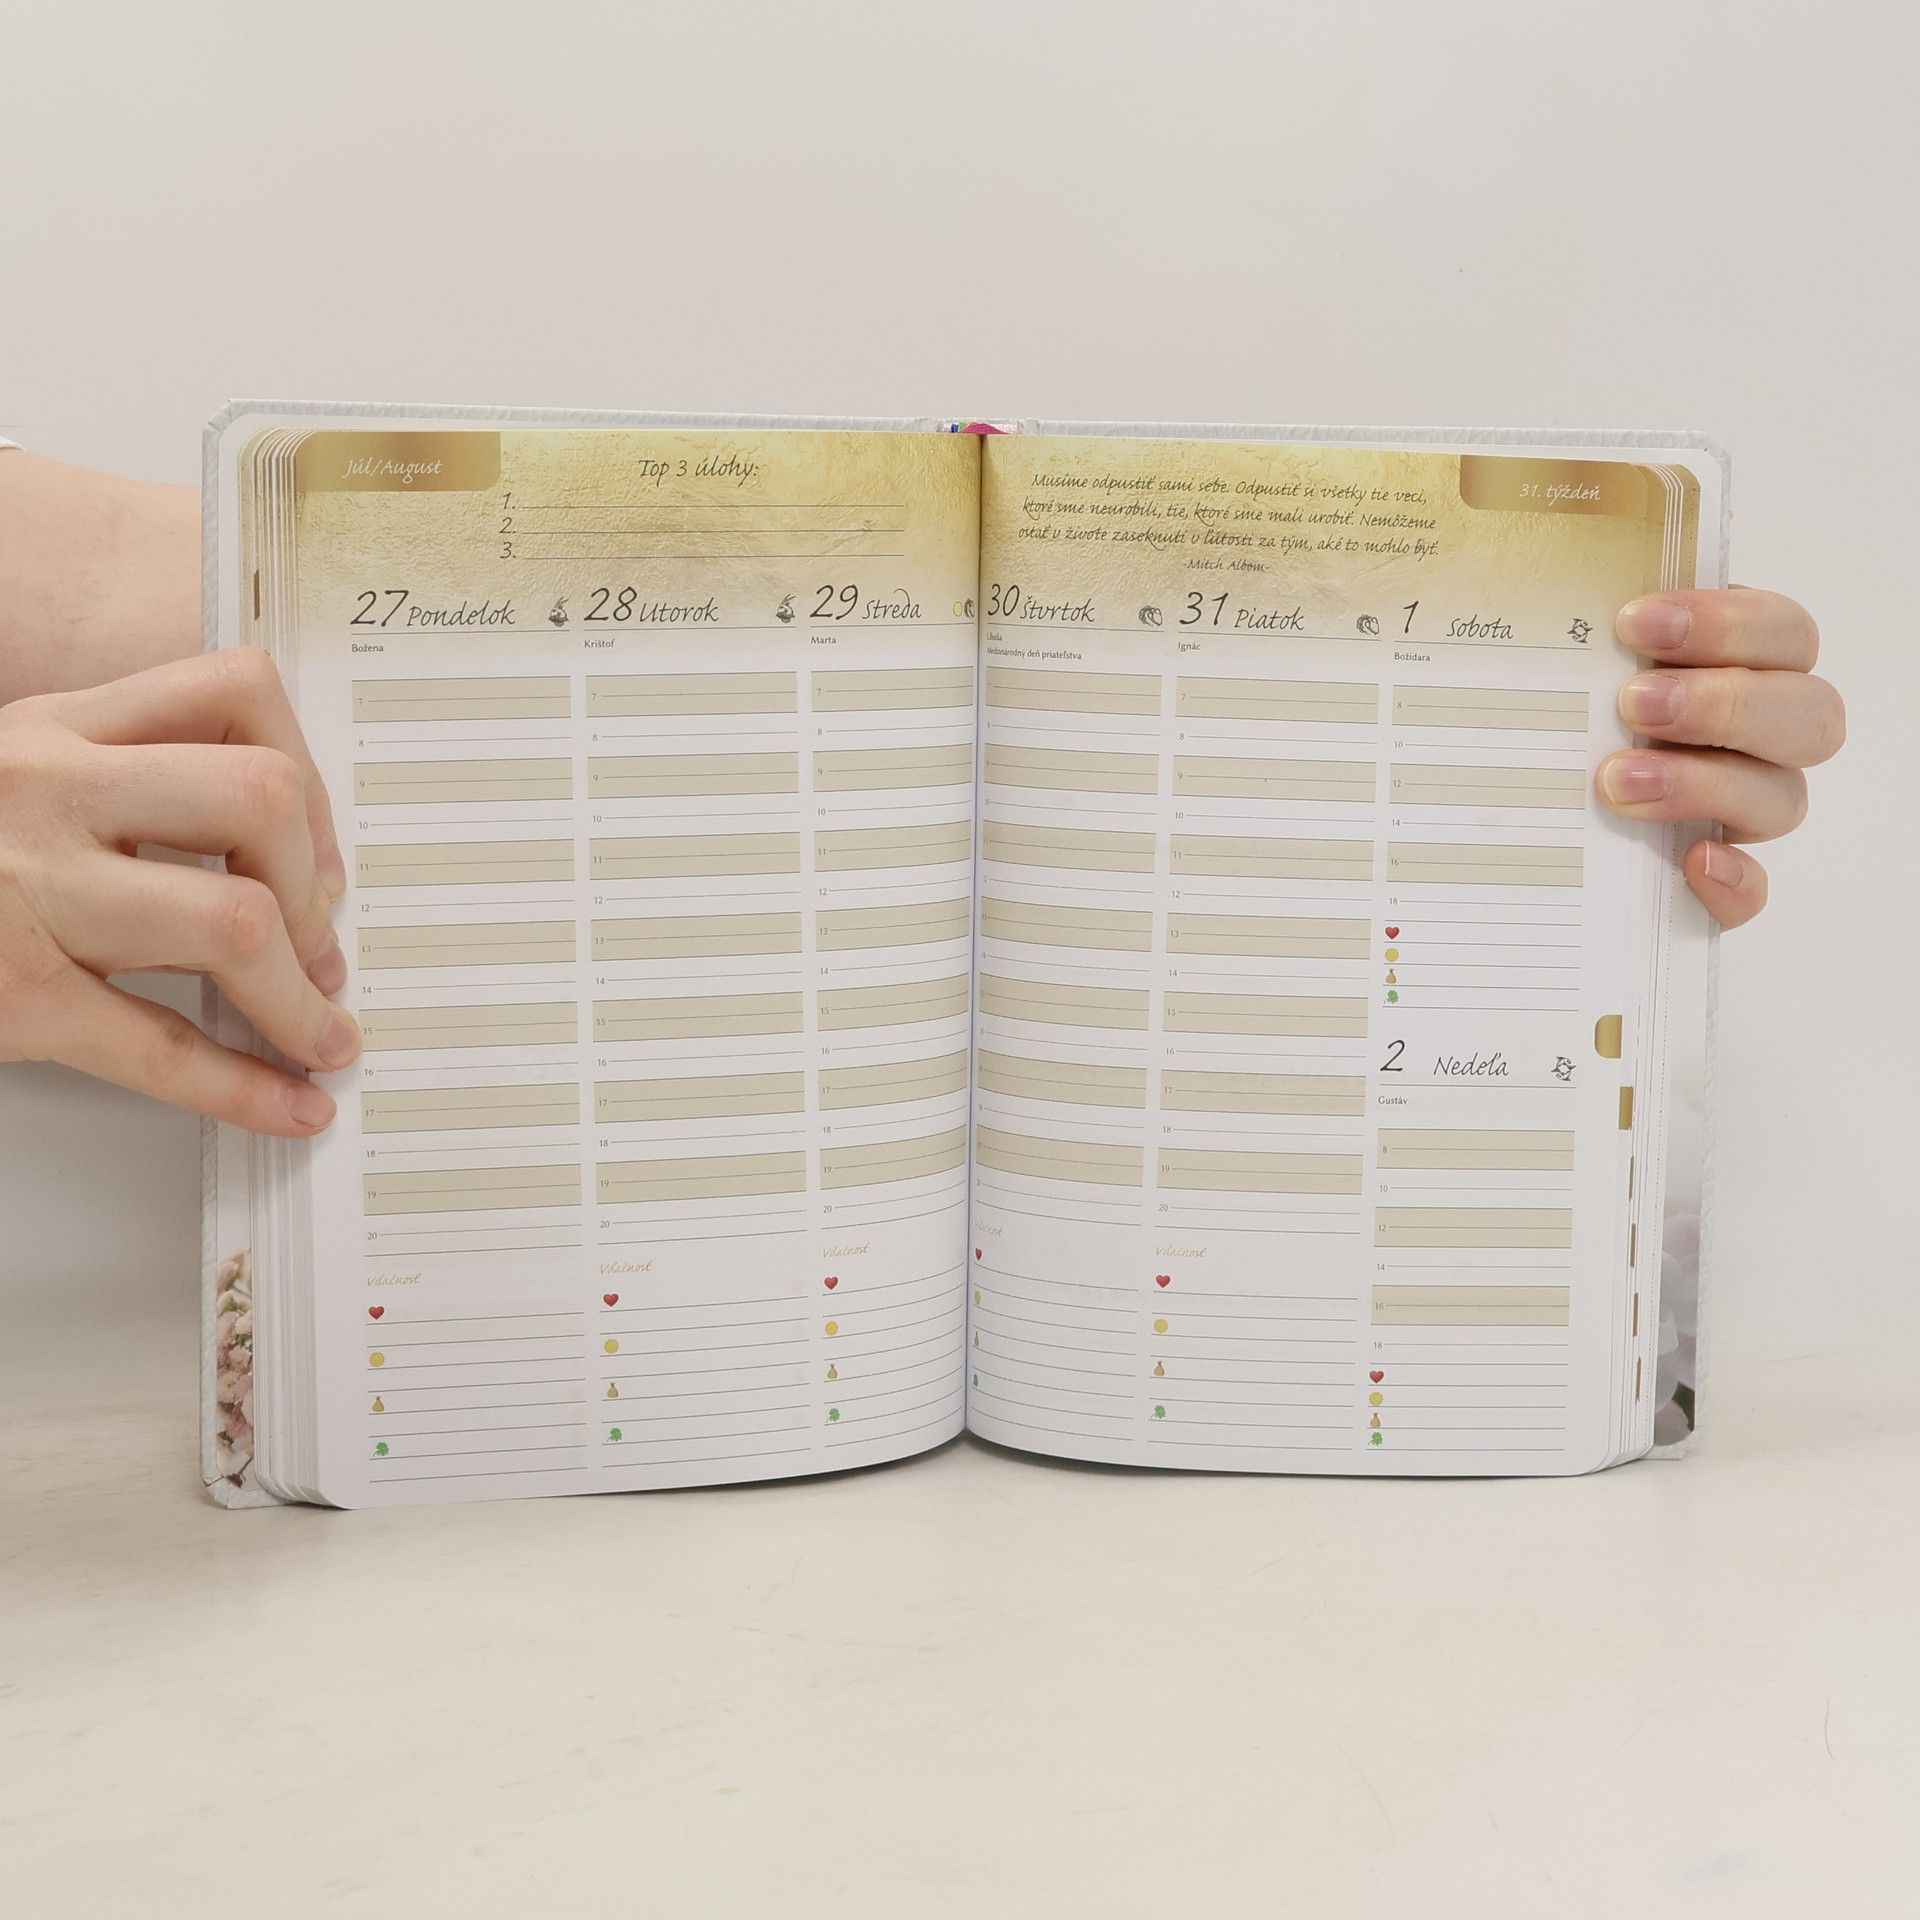 Júl/August
Top 3 úlohy:
1.
2.
3.
27 Pondelok
Božena
7
8
9
10
11
12
13
14
15
16
17
18
19
20
Vďačnosť
28 Utorok
Krištof
7
8
9
10
11
12
13
14
15
16
17
18
19
20
Vďačnosť
29 Streda
Marta
7
8
9
10
11
12
13
14
15
16
17
18
19
20
Vďačnosť
Musíme odpustiť sami sebe. Odpustiť si všetky tie veci,
ktoré sme neurobili, tie, ktoré sme mali urobiť. Nemôžeme
ostať v živote zaseknutí v ľútosti za tým, aké to mohlo byť.
-Mitch Albom-
31. týždeň
30 Štvrtok
Libuša
Medzinárodný deň priateľstva
Vďačnosť
31 Piatok
Ignác
7
8
9
10
11
12
13
14
15
16
17
18
19
20
Vďačnosť
1 Sobota
Božidara
8
10
12
14
16
18
2 Nedeľa
Gustáv
8
10
12
14
16
18